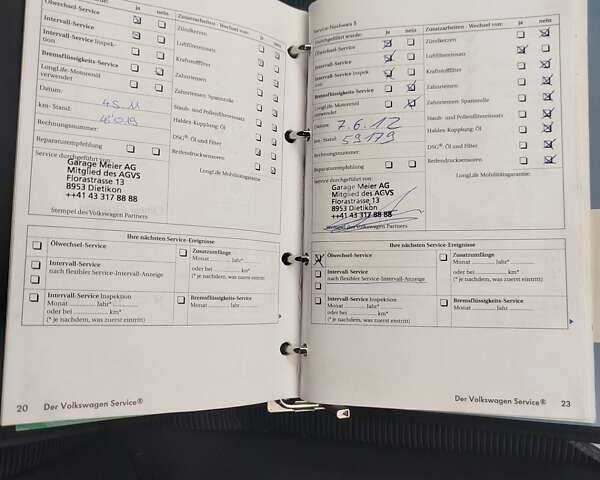 Ölwechsel-Service ja nein
Intervall-Service
Intervall-Service Inspek-
tion
Bremsflüssigkeits-Service
LongLife-Motorenöl
verwendet
Datum:
km-Stand:
Rechnungsnummer:
Reparaturempfehlung
Service durchgeführt von:
Garage Meier AG
Mitglied des AGVS
Florastrasse 13
8953 Dietikon
++41 43 317 88 88
Stempel des Volkswagen Partners
Zusatzarbeiten - Wechsel von: ja nein
Zündkerzen
Luftfiltereinsatz
Kraftstofffilter
Zahnriemen
Zahnriemen-Spannrolle
Staub- und Pollenfiltereinsatz
Haldex-Kupplung: Öl
DSG®: Öl und Filter
Reifendruckssensoren
LongLife Mobilitätsgarantie
Ihre nächsten Service-Ereignisse
Ölwechsel-Service
Intervall-Service
nach flexibler Service-Intervall-Anzeige
Intervall-Service Inspektion
Monat Jahr*
oder bei km*
(* je nachdem, was zuerst eintritt)
Zusatzumfänge
Monat Jahr*
oder bei km*
(* je nachdem, was zuerst eintritt)
Bremsflüssigkeits-Service
Monat Jahr
20 Der Volkswagen Service®
Service-Nachweis 5
Durchgeführt wurde: ja nein
Ölwechsel-Service
Intervall-Service
Intervall-Service Inspek-
tion
Bremsflüssigkeits-Service
LongLife-Motorenöl
verwendet
Datum: 7.6.12
km-Stand: 59179
Rechnungsnummer:
Reparaturempfehlung
Service durchgeführt von:
Garage Meier AG
Mitglied des AGVS
Florastrasse 13
8953 Dietikon
++41 43 317 88 88
Stempel des Volkswagen Partners
Zusatzarbeiten - Wechsel von: ja nein
Zündkerzen
Luftfiltereinsatz
Kraftstofffilter
Zahnriemen
Zahnriemen-Spannrolle
Staub- und Pollenfiltereinsatz
Haldex-Kupplung: Öl
DSG®: Öl und Filter
Reifendruckssensoren
LongLife Mobilitätsgarantie:
Ihre nächsten Service-Ereignisse
Ölwechsel-Service
Intervall Service
nach flexibler Service-Intervall-Anzeige
Intervall-Service Inspektion
Monat Jahr*
oder bei km*
(* je nachdem, was zuerst eintritt)
Zusatzumfänge
Monat Jahr*
oder bei km*
(* je nachdem, was zuerst eintritt)
Bremsflüssigkeits-Service
Monat Jahr
Der Volkswagen Service® 23